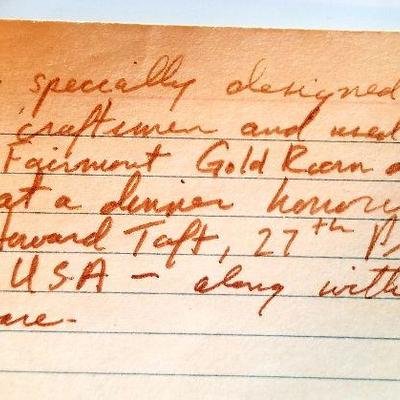 specially designed
craftsmen and used
Fairmont Gold Room
at a dinner honor
Howard Taft, 27th
USA - along with
are-